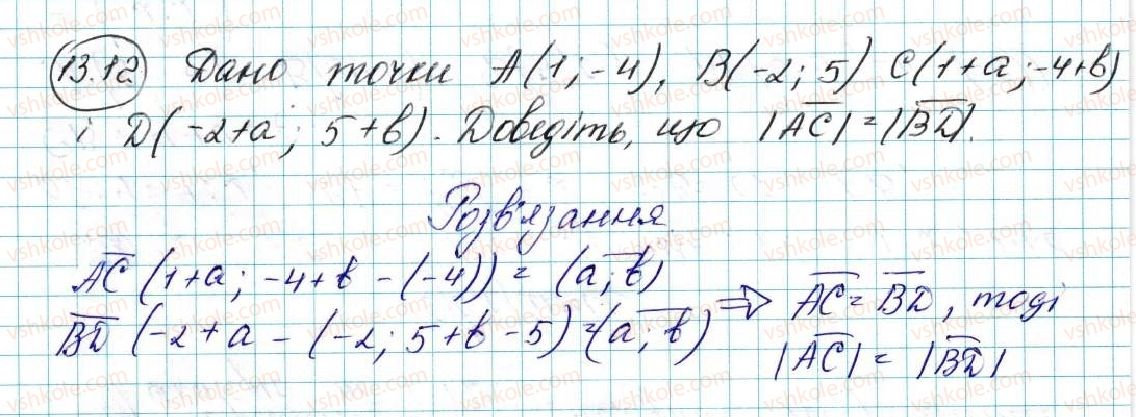 13.12 Дано точки A(1;-4), B(-2; 5) C(1+a;-4+b)
і D(-2+a; 5+b). Доведіть, що |AC|=|BD|.
Розв'язання
AC (1+a; -4+b-(-4)) = (a; b)
BD (-2+a-(-2; 5+b-5)=(a; b) ⇒ AC=BD, тоді
|AC| = |BD|